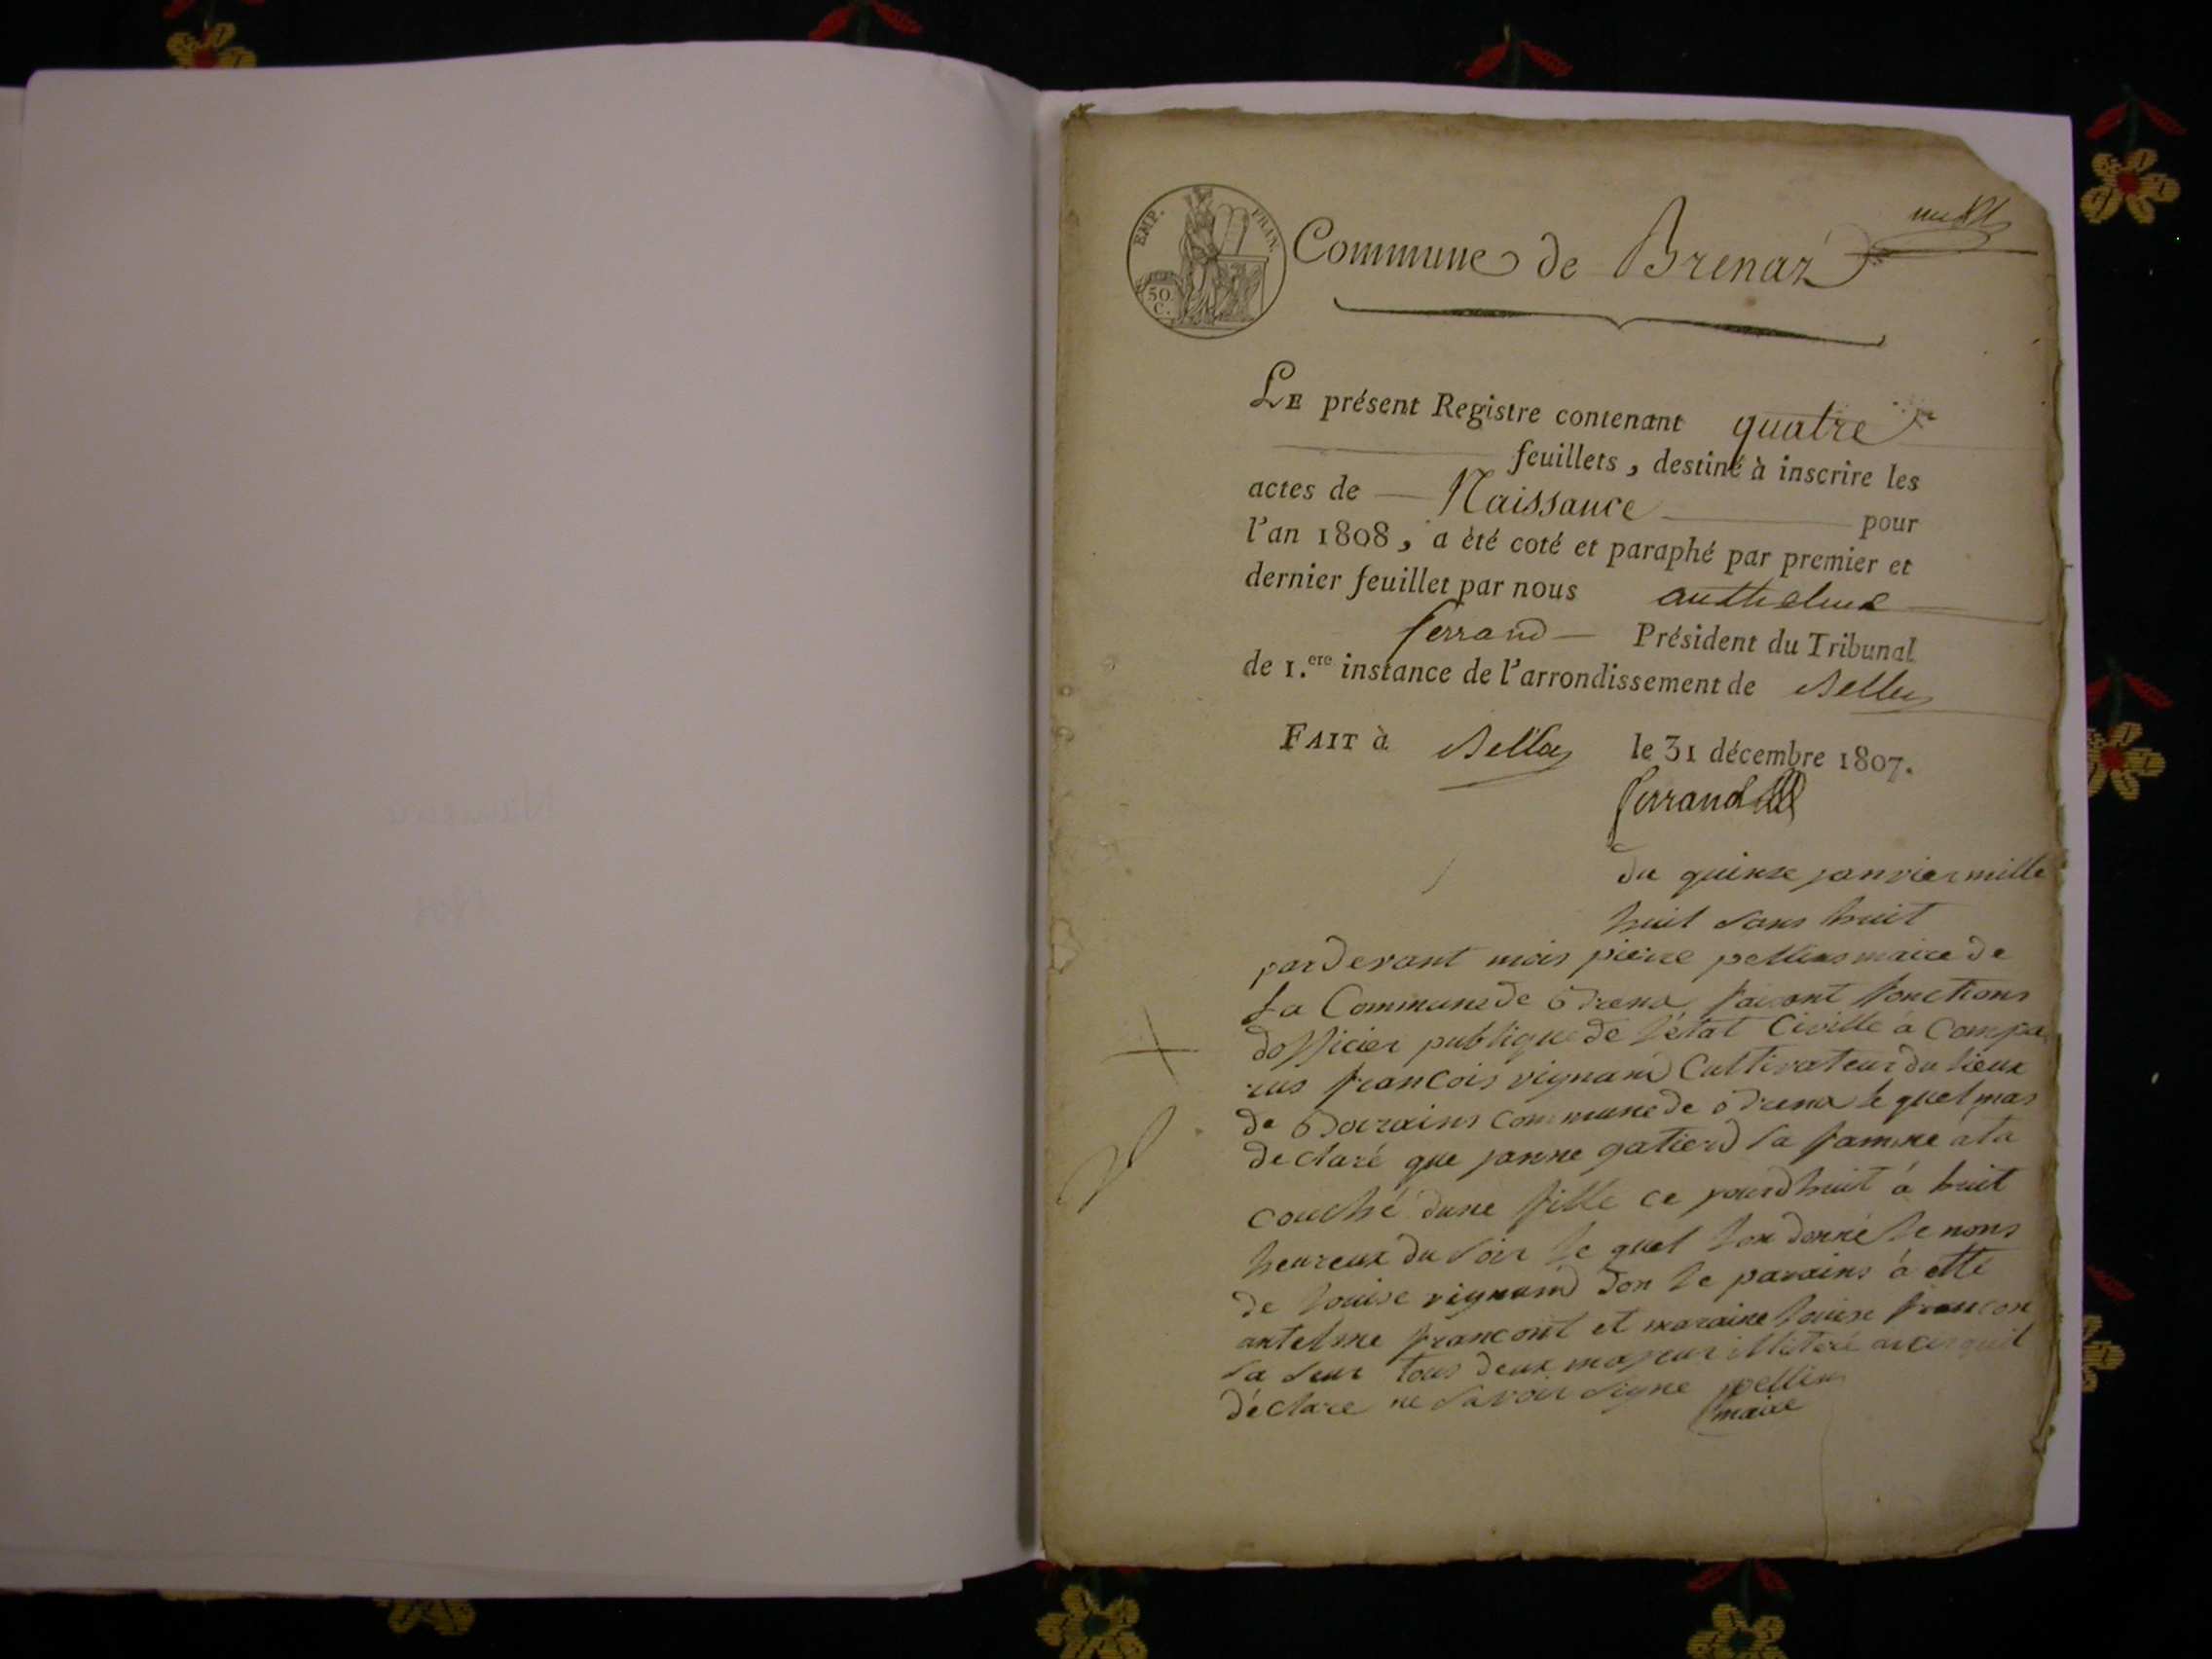 EMP. FRAN.
50 C.
Commune de Brenaz
LE présent Registre contenant quatre
feuillets, destiné à inscrire les
actes de Naissance pour
l'an 1808, a été coté et paraphé par premier et
dernier feuillet par nous anthelme
ferrand Président du Tribunal
de 1.ere instance de l'arrondissement de Belley
FAIT à Belley le 31 décembre 1807.
ferrand
du quinze janvier mille
huit sans huit
pardevant mois pierre pellins maire de
la Commune de faisant fonctions
dofficier publique de l'état Civille à Compa
rus francois vignand Cultivateur du lieux
de commune de le quel mas
declaré que janne gatierd sa famme ata
couché dune fille ce jourdhuit á huit
heureux du soir le quel lon donné le noms
de louise vignand don le parains à etté
antelme francont et maraine louise francon
sa seur tous deux majeur
déclare ne savoir signe pellins
maire